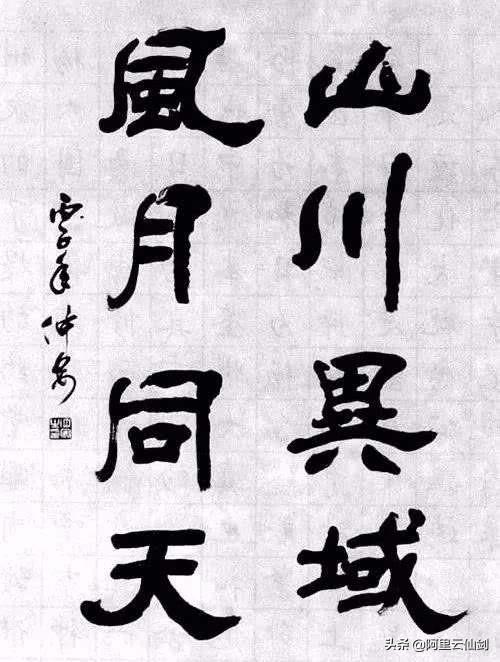 山川異域
風月同天
仲安
头条 @阿里云仙剑